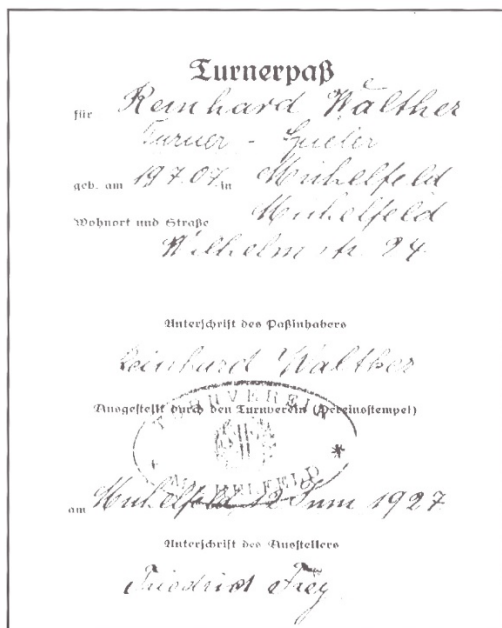 Turnerpaß
für Reinhard Walther
Turner - Spieler
geb. am 19.7.07. in Michelfeld
Wohnort und Straße Michelfeld
Wilhelmstr. 94
Unterschrift des Paßinhabers
Reinhard Walther
Ausgestellt durch den Turnverein (Vereinsstempel)
TURNVEREIN
MICHELFELD
am Michelfeld, 12 Juni 1927
Unterschrift des Ausstellers
Friedrich Frey